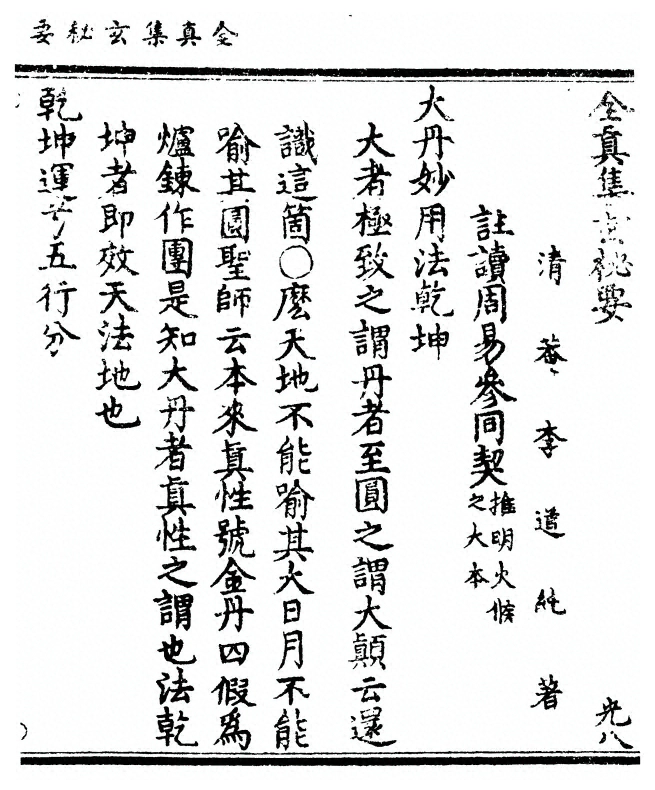 全真集玄秘要
全真集玄秘要
光八
清菴李道純著
註讀周易參同契推明火候之大本
大丹妙用法乾坤
大者極致之謂丹者至圓之謂大顛云還
識這箇○麼天地不能喻其大日月不能
喻其圓聖師云本來真性號金丹四假為
爐鍊作團是知大丹者真性之謂也法乾
坤者即效天法地也
乾坤運兮五行分